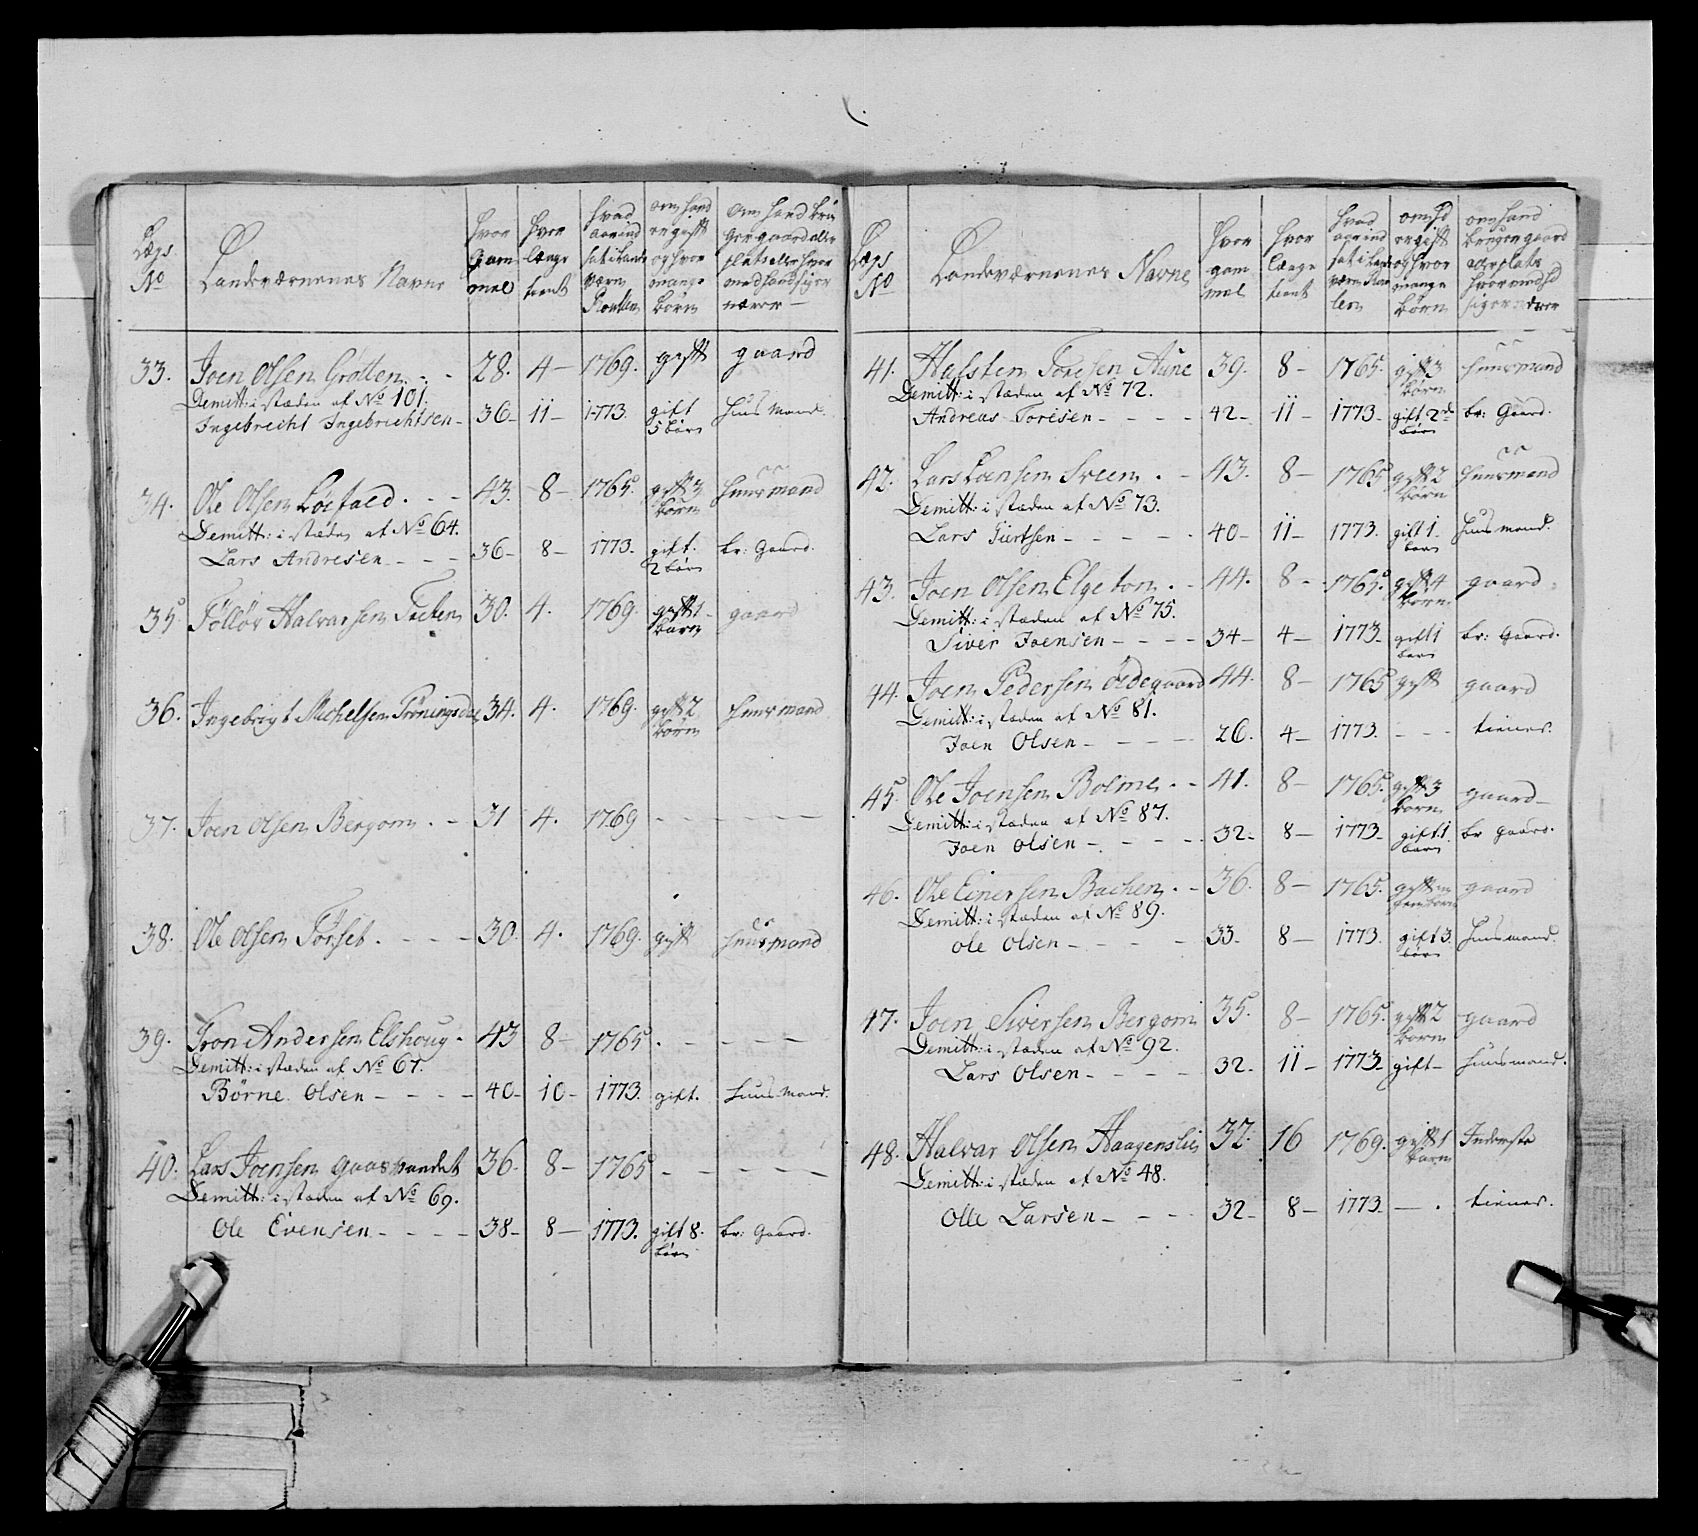 Lægs No
Landeværnenes Navne
Hvor gam mel
Hvor længe tient
hvad aar ind sat i Lande værn Roullen
om hand er gift og hvor mange børn
Om hand bru ger gaard eller plads eller hvor med hand sig er nærer
33. Joen Olsen Grøtten - - 28. 4 - 1769. gift gaard
Demitt: i stæden af No 101.
Ingebrecht Ingebrechtsen - 36 - 11 - 1773. gift 5 børn Huusmand.
34. Ole Olsen Løefald . - - 43. 8 - 1765. gift 3 børn huusmand
Demitt: i stæden af No 64.
Lars Andresen - - - 36 - 8 - 1773 - gift. 2 børn br: Gaard.
35. Föllör Halvarsen 30. 4. 1769. gift 1 barn gaard
36. Ingebrigt Michelsen Drönings dal 34. 4. 1769. gift 2 børn huusmand
37. Joen Olsen Bergom . - 31 4. 1769 - - - - -
38. Ole Olsen Förset . - - - 30. 4. 1769. gift huusmand
39. Tron Andersen Elshoug . 43 8 - 1765. - - - -
Demitt: i stæden af No 67.
Börne Olsen - - - - 40 - 10 - 1773. gift. Huusmand.
40. Lars Joensen Gaashandet 36. 8 - 1765 - - - - -
Demitt: i stæden af No 69.
Ole Evensen - - - - 38 - 8 - 1773. gift 8. børn br: Gaard.
Lægs No
Landeværnenes Navne
Hvor gam mel
Hvor længe tient
hvad aar ind sat i Lande værn Roullen
om hd er gift og hvor mange børn
om hand bruger gaard eller plads hvor med hd sig ernærer
41. Hafsten Toresen Aune 39. 8 - 1765. gift 3 børn huusmand
Demitt: i stæden af No 72.
Andreas Toresen - - - - 42 - 11 - 1773 - gift 2de børn br: Gaard.
42. Lars Joensen Sveen . - 43. 8 - 1765 gift 2 børn huusmand
Demitt: i stæden af No 73.
Lars - - - - - 40 - 11 - 1773. gift 1 barn Huusmand.
43. Joen Olsen Elgeton . - 44. 8 - 1765. gift 4 børn gaard
Demitt: i stæden af No 75.
Siver Joensen - - - - 34 - 4 - 1773 - gift 1 barn br: Gaard.
44. Joen Pedersen Ödegaard 44. 8 - 1765 gift gaard
Demitt: i stæden af No 81.
Joen Olsen - - - - - 26. 4 - 1773. - - - tiener.
45. Ole Joensen Bolme . - 41. 8 - 1765. gift 3 børn gaard -
Demitt: i stæden af No 87.
Joen Olsen - - - - - 32 - 8 - 1773 - gift. 1 barn br gaard.
46. Ole Einersen Bachen . - 36. 8 - 1765. gift gaard
Demitt: i stæden af No 89.
Ole Olsen - - - - 33 - 8 - 1773. gift 3 børn Huusmand.
47. Joen Siversen Bergom 35. 8 - 1765. gift 2 børn gaard
Demitt: i stæden af No 92.
Lars Olsen - - - - 32 - 11 - 1773 - gift - Huusmand.
48. Halvar Olsen Haagenslie 37. 16 1769. gift 1 barn Inderste
Demitt: i stæden af No 48.
Olle Larsen - - - - 32 - 8 - 1773 - - . tiener.